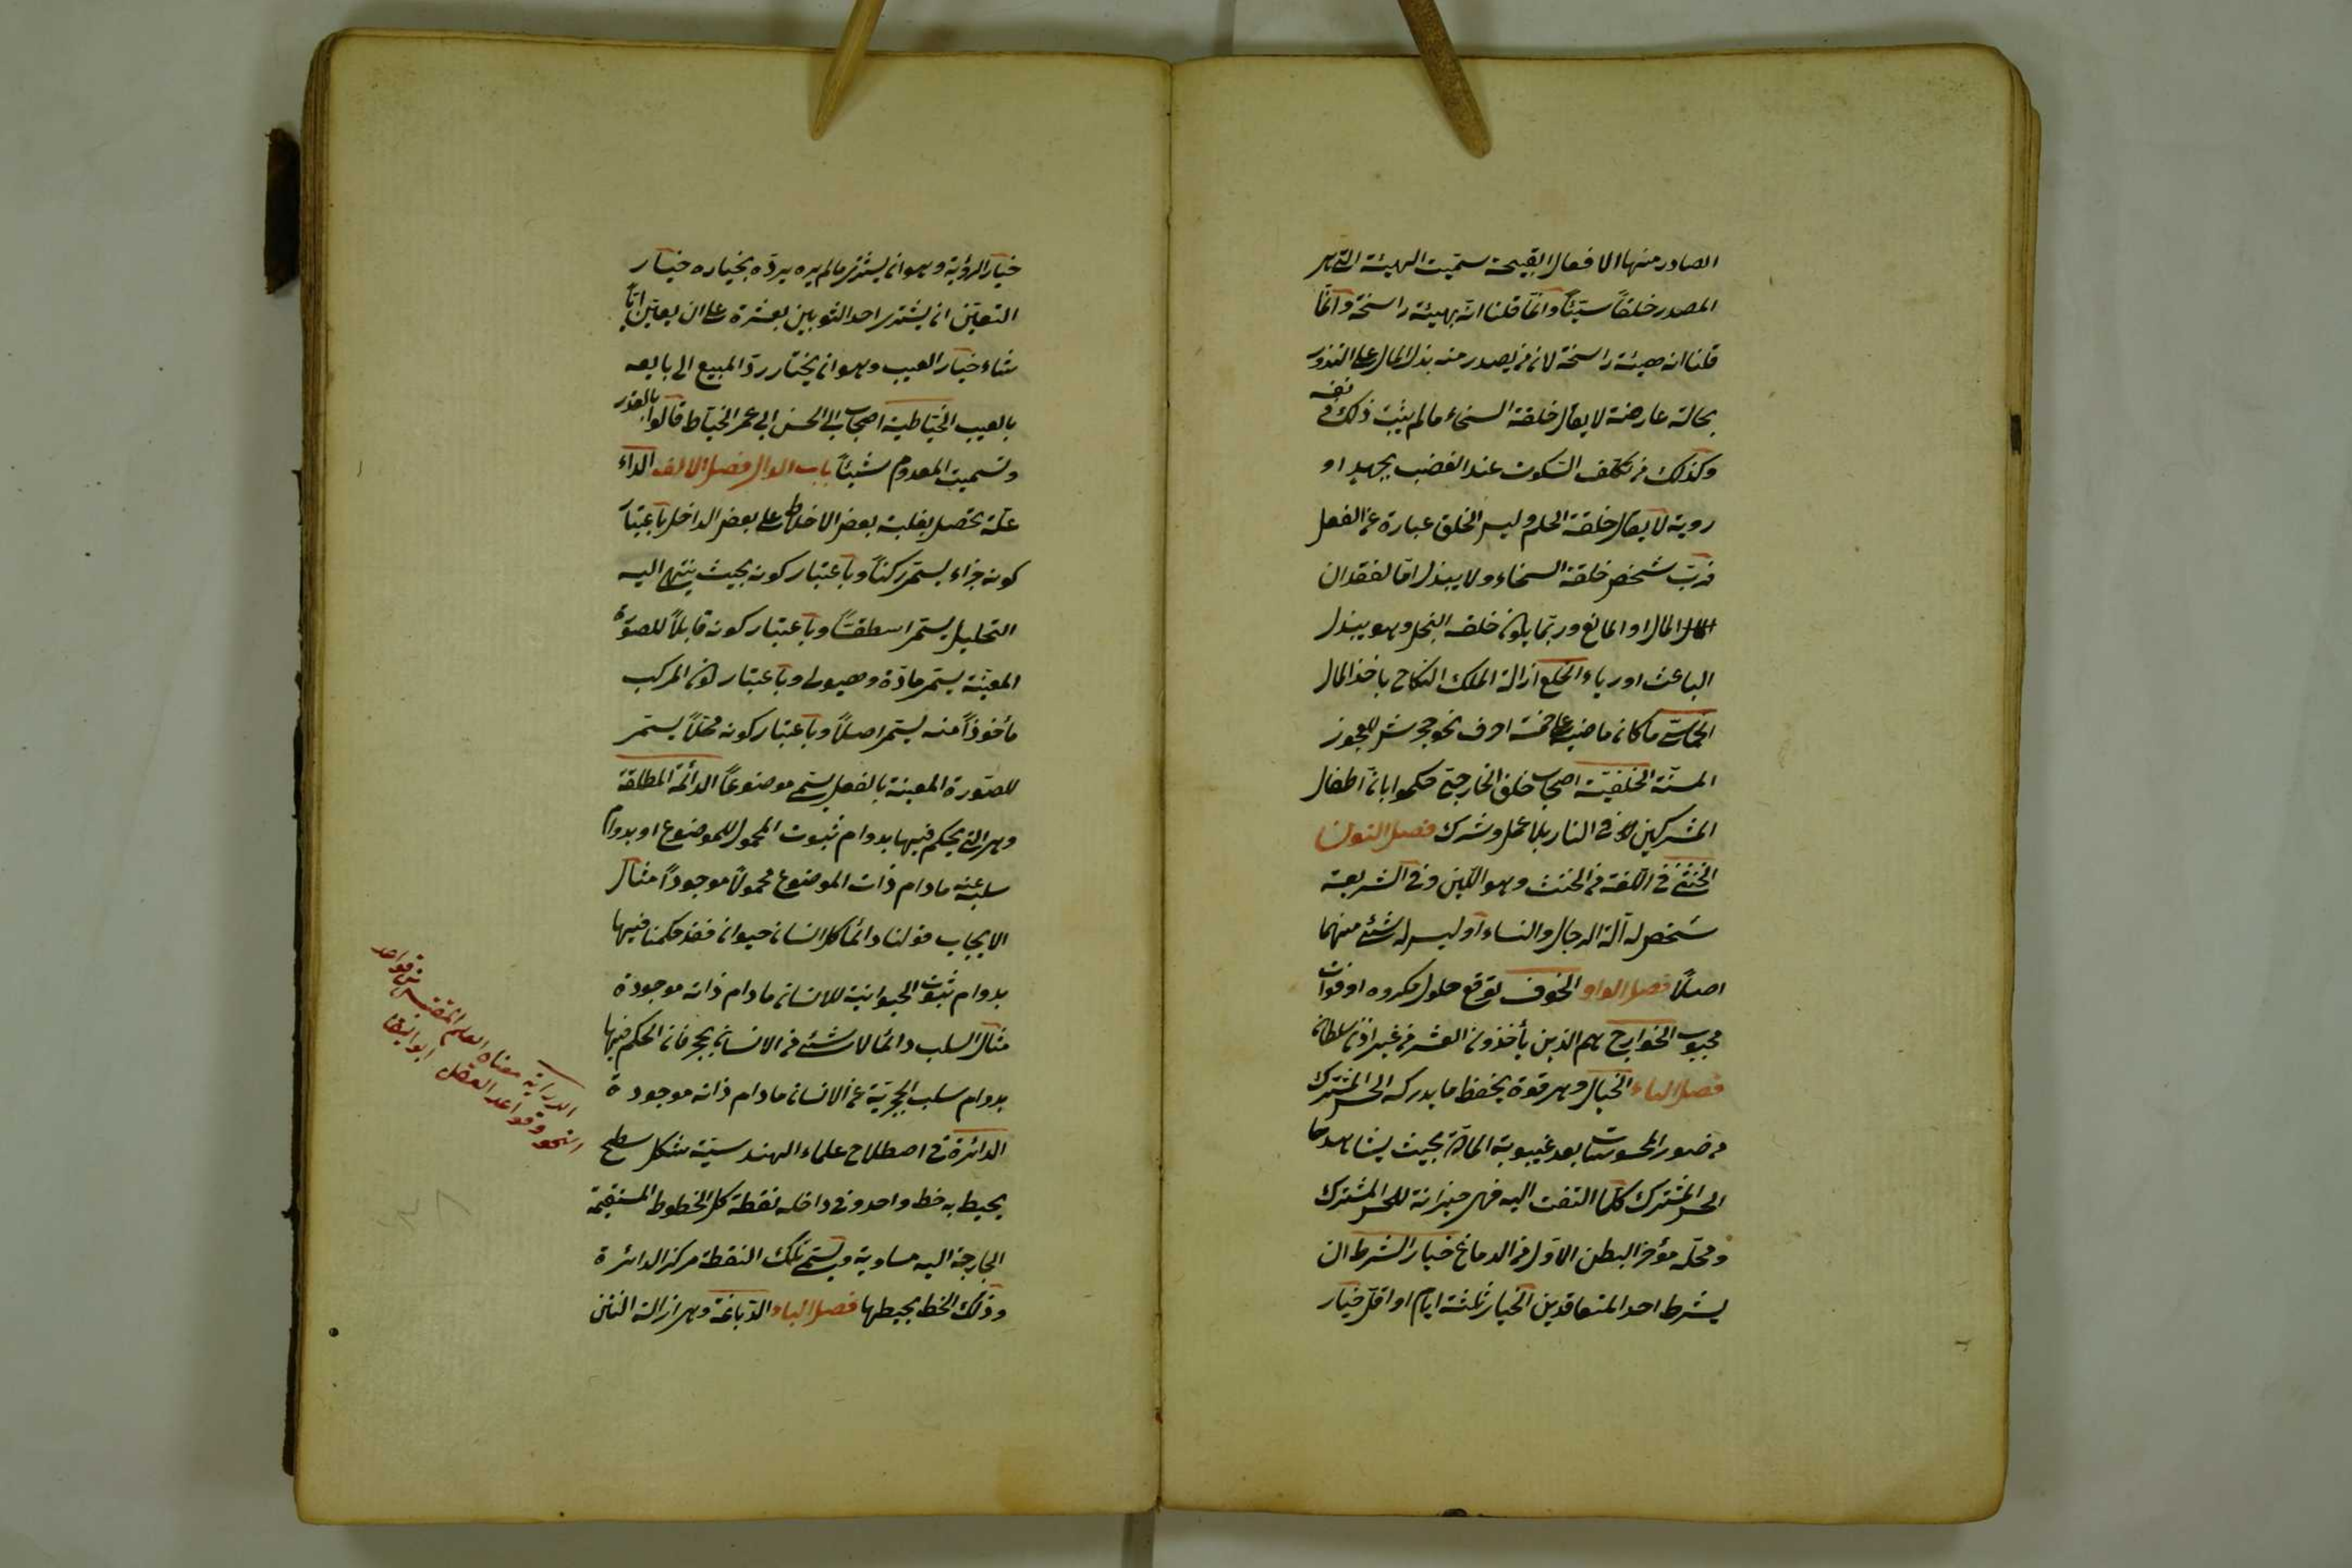 الصادر منها الافعال القبيحة سميت الهيئة التي هي
المصدر خلقاً سيئاً وانما قلنا انه هيئة راسخة وانما
قلنا انه هيئة راسخة لان من يصدر منه بذل المال على الندور
بحالة عارضة لا يقال خلقه السخاء ما لم يثبت ذلك في نفسه
وكذلك من تكلف السكوت عند الغضب بجهد او
روية لا يقال خلقه الحلم وليس الخلق عبارة عن الفعل
فربّ شخص خلقه السخاء ولا يبذل اما لفقدان
المال او المانع وربما يكون خلقه البخل وهو يبذل
الباعث او رياء الخلع ازالة الملك النكاح باخذ المال
الخماسي ما كان ماضيه على خمسة احرف نحو جحمرش للعجوز
المسنّة الخلفية اصحاب خلف الخارجي حكموا بان اطفال
المشركين في النار بلا عمل وشرك فصل النون
الخنثى في اللغة من الخنث وهو اللين وفي الشريعة
شخص له آلة الرجال والنساء او ليس له شئ منهما
اصلاً فصل الواو الخوف توقع حلول مكروه او فوات
محبوب الخوارج هم الذين يأخذون العشر من غير اذن سلطان
فصل الياء الخيال وهو قوة يحفظ ما يدركه الحس المشترك
من صور المحسوسات بعد غيبوبة المادة بحيث يشاهدها
الحس المشترك كلما التفت اليه فهي خزانة للحس المشترك
ومحله مؤخر البطن الاول من الدماغ خيار الشرط ان
يشرط احد المتعاقدين الخيار ثلثة ايام او اقل خيار
خيار الرؤية وهو ان يشترى ما لم يره يردّه بخياره خيار
التعيّن ان يشترى احد الثوبين بعشرة على ان يعيّن ايّا
شاء خيار العيب وهو ان يختار ردّ المبيع الى بايعه
بالعيب الخياطية اصحاب ابى الحسن ابى عمر الخياط قالوا بالقدر
وتسميت المعدوم شيئاً باب الدال فصل الالف الداء
علّة تحصل بغلبة بعض الاخلاط على بعض الداخل باعتبار
كونه جزاء يسمّى ركناً وباعتبار كونه بحيث ينتهى اليه
التحليل يسمى اسطقسّاً وباعتبار كونه قابلاً للصورة
المعينة يسمى مادّة وهيولى وباعتبار كون المركب
مأخوذاً منه يسمى اصلاً وباعتبار كونه محلاً يسمى
للصورة المعينة بالفعل يسمى موضوعاً الدائمة المطلقة
وهى التى يحكم فيها بدوام ثبوت المحمول للموضوع او بدوام
سلبه عنه مادام ذات الموضوع محمولاً موجوداً مثال
الايجاب قولنا دائماً كل انسان حيوان فقد حكمنا فيها
بدوام ثبوت الحيوانية للانسان مادام ذاته موجودة
مثال السلب دائما لا شئ من الانسان بحجر فان الحكم فيها
بدوام سلب الحجرية عن الانسان مادام ذاته موجودة
الدائرة فى اصطلاح علماء الهندسية شكل سطح
يحيط به خط واحد وفى داخله نقطة كل الخطوط المستقيمة
الخارجة اليه مساوية ويسمى تلك النقطة مركز الدائرة
وذلك الخط محيطها فصل الباء الدباغة وهى ازالة النتن
الدراية معناه العلم المقتبس من قواعد
النحو وقواعد العقل ابو البقا